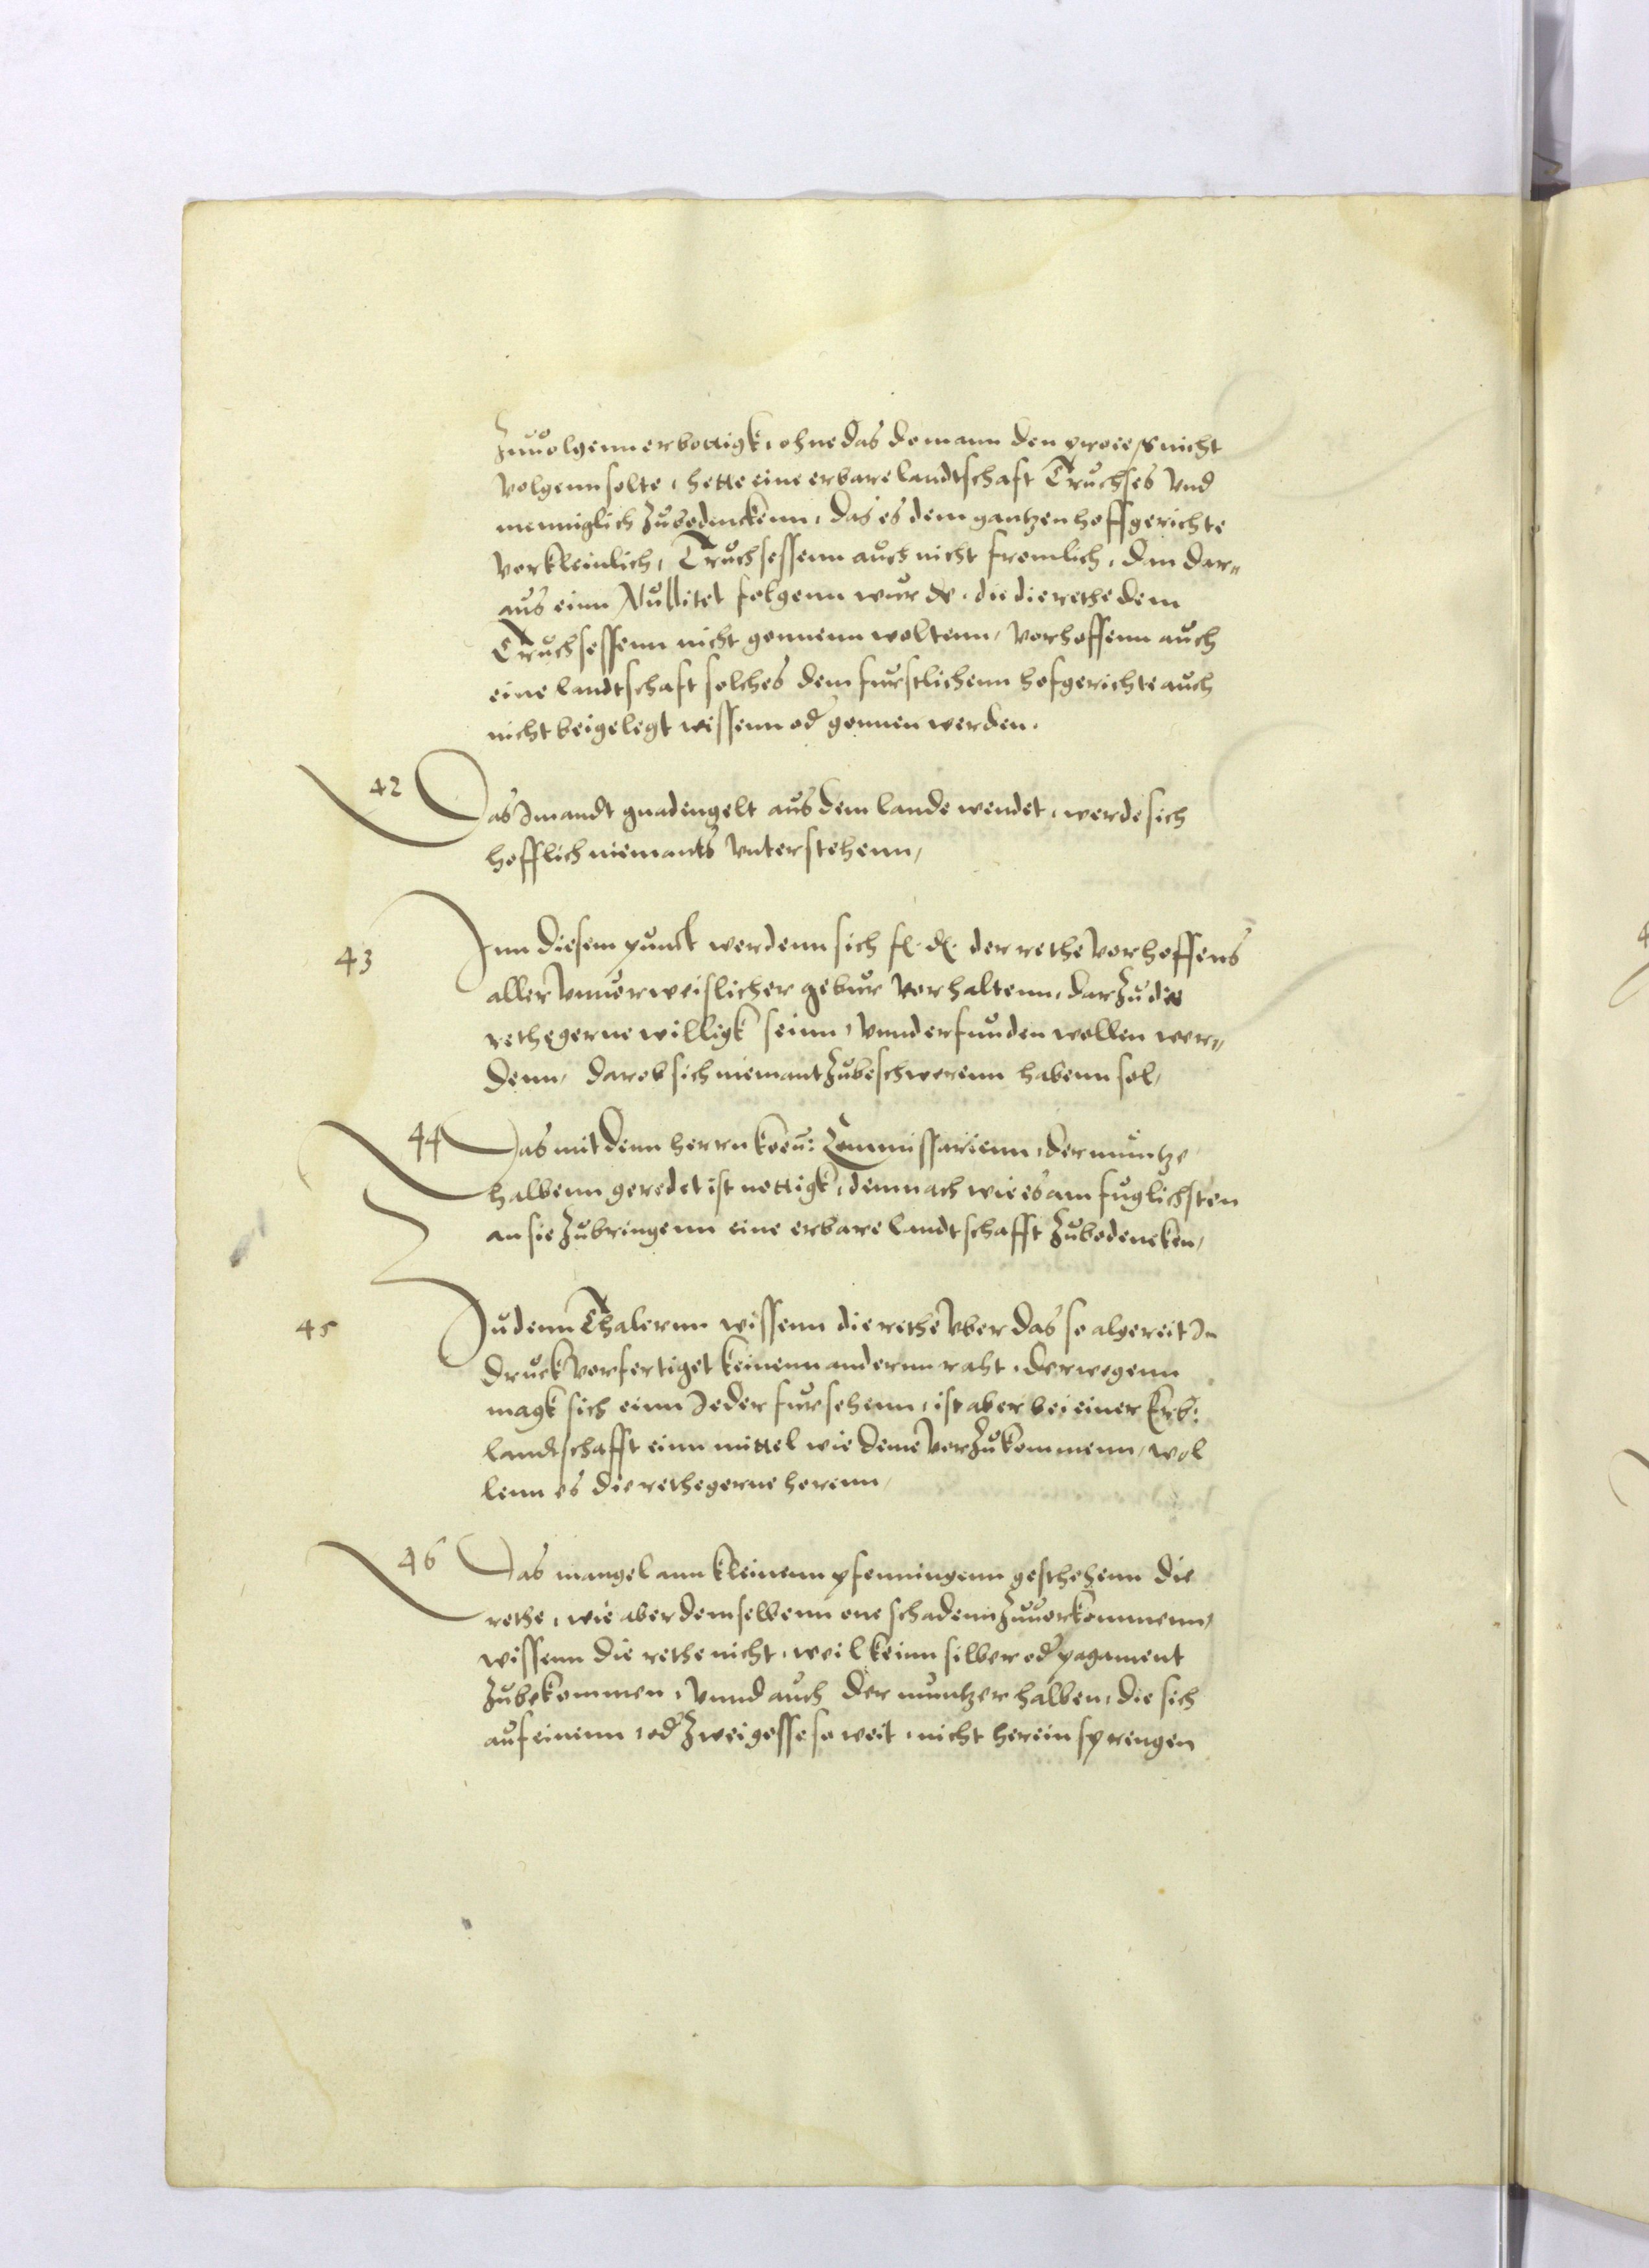 Zuuolgenn erbottigk, ohne das do mann den process nicht
volgenn solte, hette eine erbare landtschaft Truchses vnd
menniglich zubedenckenn, das es dem gantzen hoffgerichte
vorkleinlich, Truchsessenn auch nicht fromlich, dan dar„
aus einn Nullitet folgenn wurde, die die rethe dem
Truchsessenn nicht gonnenn woltenn, vorhoffenn auch
eine landtschaft solches dem furstlichenn hofgerichte auch
nicht beigelegt wissenn od gonnen werden.
42 Das Jmandt gnadengelt aus dem lande wendet, werde sich
hofflich niemants vnterstehenn,
43 Jnn diesem punct werdenn sich f. d. der rethe vorhoffens
aller vnuorweislicher gebur vorhaltenn, darzu die
rethe gerne willigk seinn, vnnd erfunden wollen wer„
denn, darob sich niemant zubeschwerenn habenn sol,
44 Das mit denn herrn Commissarienn, der muntze
halbenn geredet ist nottigk, demnach wie es am fuglichsten
an sie zubringenn eine erbare landtschafft zubedencken,
45 Zu denn Thalernn wissenn die rethe vber das so algereit Jn
druck vorfertiget keinenn andernn raht, derwegenn
magk sich einn Jeder fursehenn, ist aber bei einer Erb:
landtschafft einn mittel wie deme vorzukommenn, wol
lenn es die rethe gerne horenn,
46 Das mangel ann kleinenn pfenningenn gestehenn die
rethe, wie aber demselbenn one schadenn zuuorkommenn,
wissenn die rethe nicht, weil keinn silber od pagament
zubekommen, vnnd auch der muntzer halben, die sich
auf einenn, od zwei gesse so weit, nicht herein sprengen